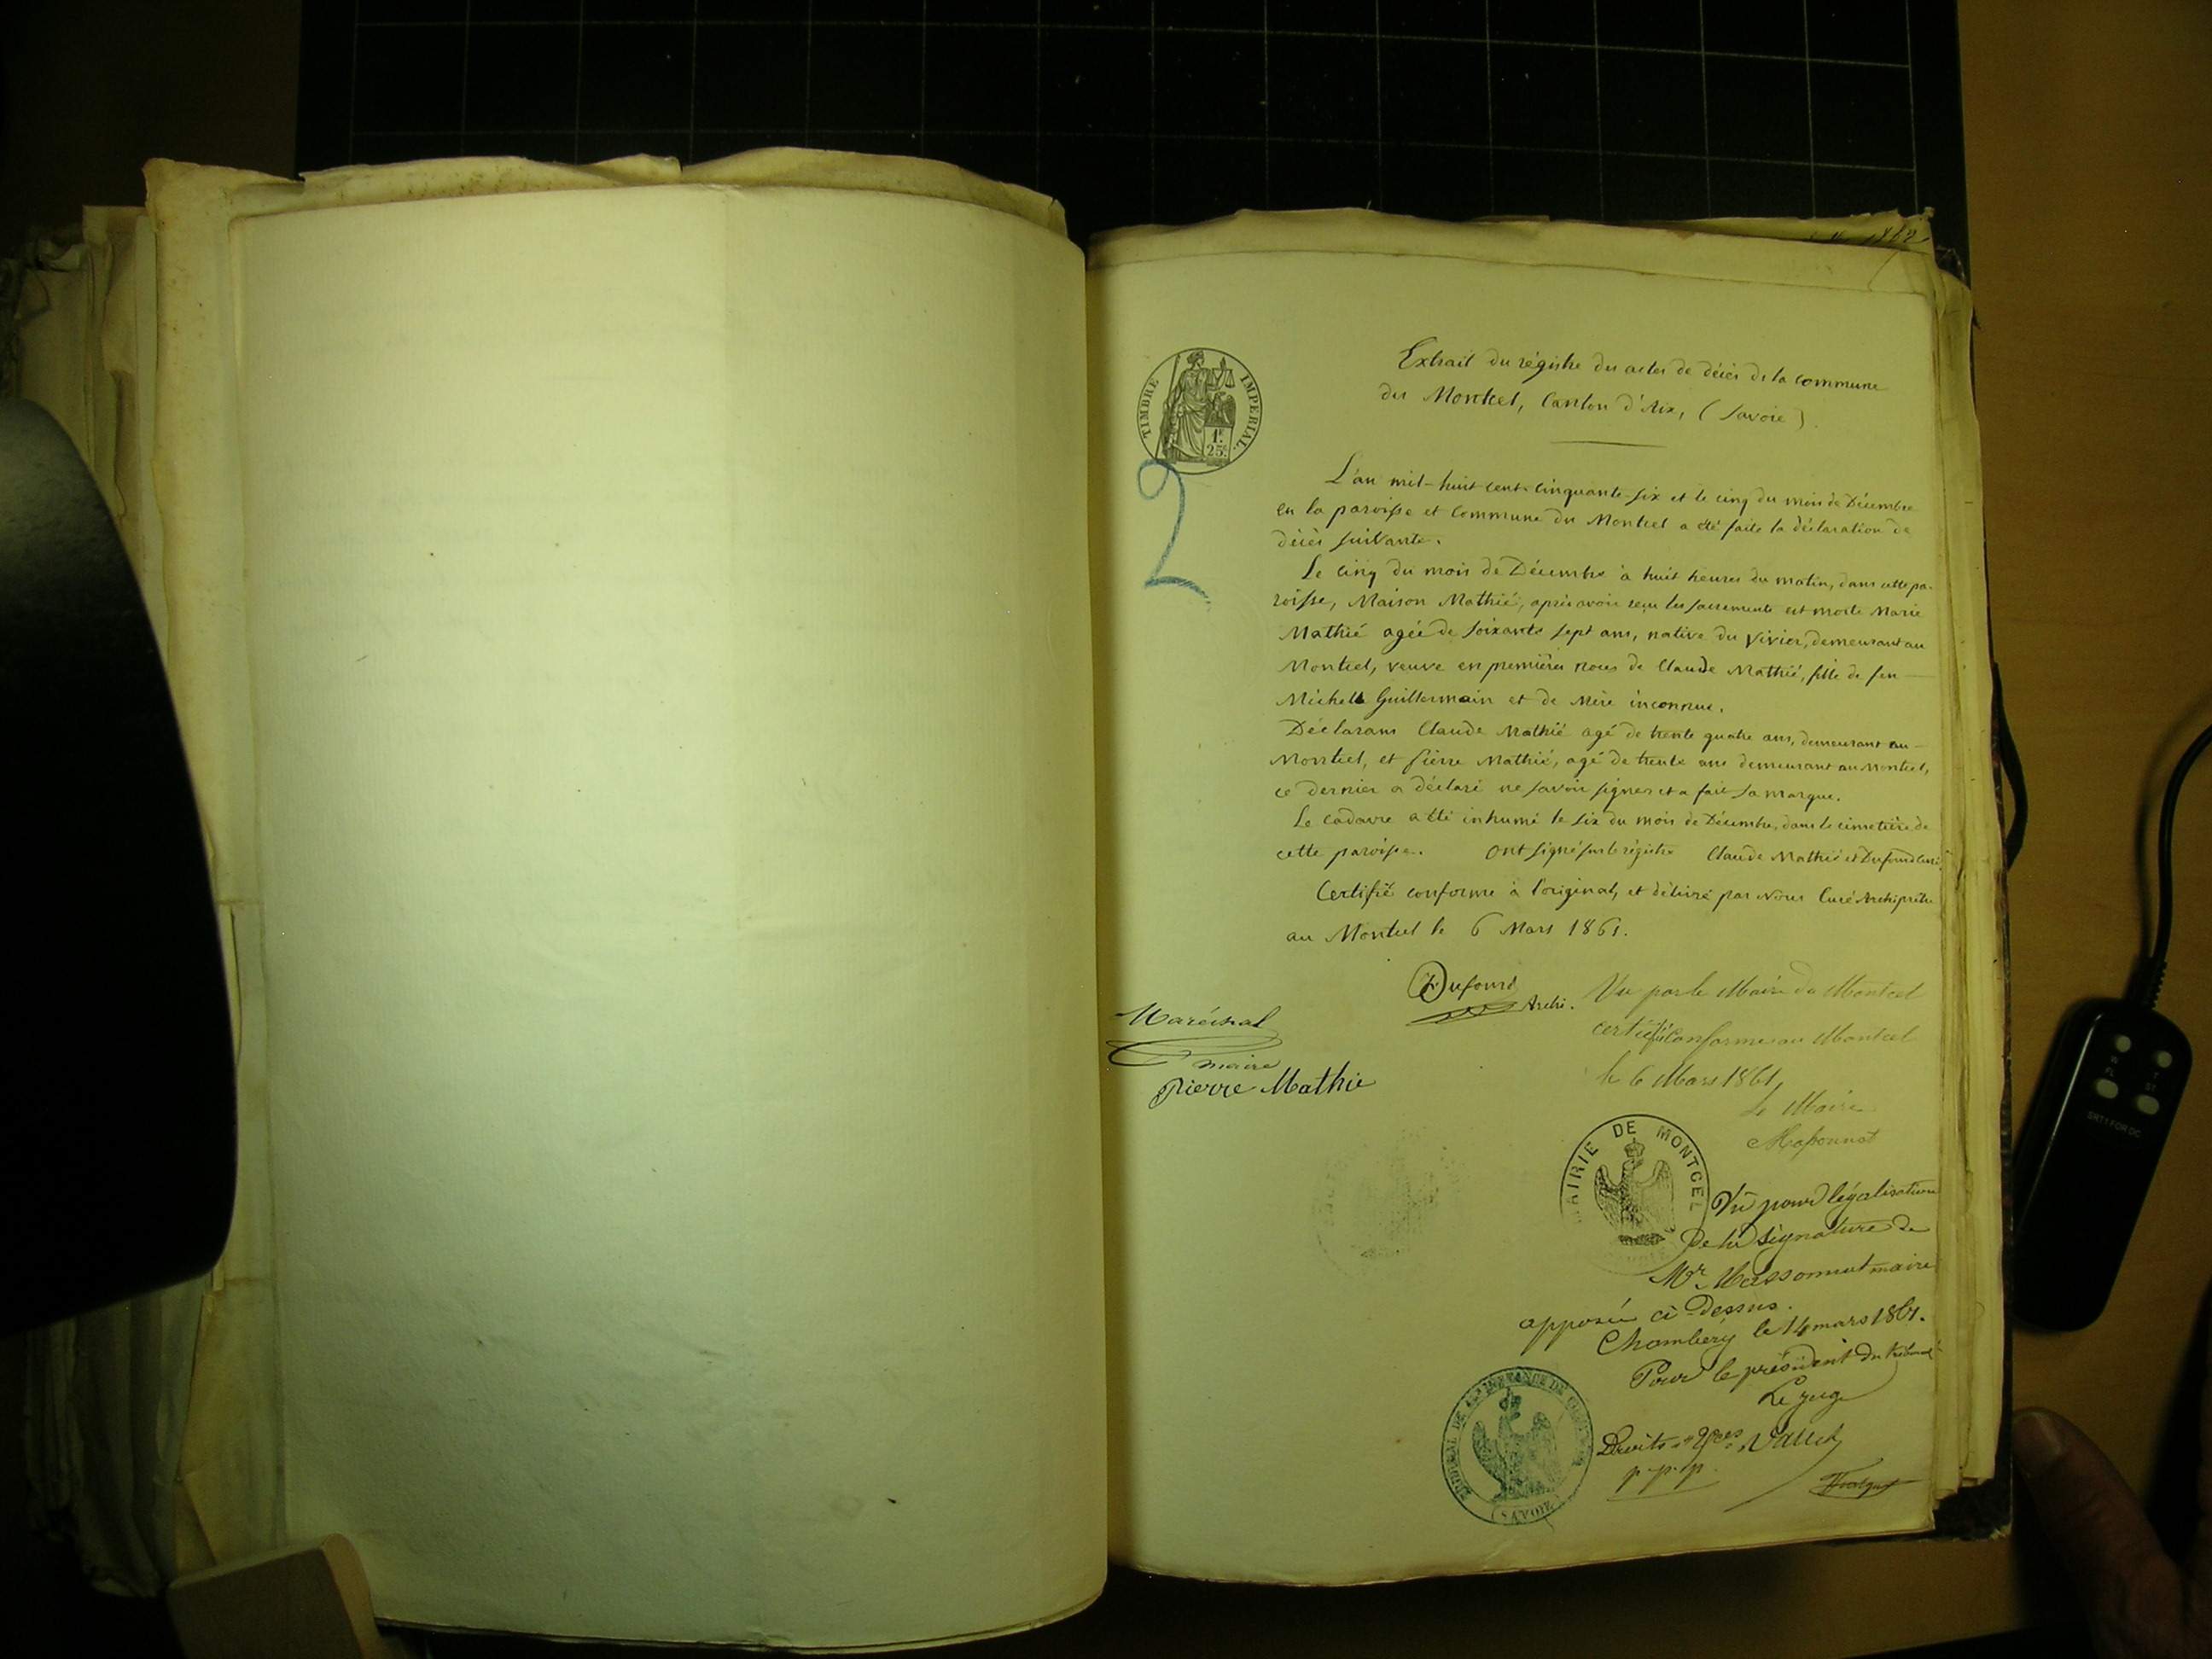 1862
TIMBRE IMPERIAL
1F.
25c.
2
Extrait du régistre des actes de décès de la commune
du Montcel, Canton d'Aix, (Savoie).
L'an mil-huit cent-cinquante-six et le cinq du mois de Décembre
en la paroisse et Commune du Montcel a été faite la déclaration de
décès suivante.
Le cinq du mois de Décembre à huit heures du matin, dans cette pa-
roisse, Maison Mathié, après avoir reçu les sacrements est morte Marie
Mathié agée de soixante sept ans, native du Vivier, demeurant au
Montcel, veuve en premières noces de Claude Mathié, fille de feu
Michel Guillermain et de Mère inconnue.
Déclarans Claude Mathié agé de trente quatre ans, demeurant au
Montcel, et Pierre Mathié, agé de trente ans demeurant au Montcel,
ce dernier a déclaré ne savoir signer et a fait sa marque.
Le cadavre a été inhumé le six du mois de Décembre, dans le cimetière de
cette paroisse. Ont signé sur le régistre Claude Mathié et Dufourd Curé.
Certifié conforme à l'original, et délivré par Nous Curé Archiprêtre
au Montcel le 6 Mars 1861.
Dufourd
Archi.
Maréchal
maire
Pierre Mathie
Vu par le Maire du Montcel
certifié Conforme au Montcel
le 6 Mars 1861,
Le Maire
Massonnat
MAIRIE DE MONTCEL
Vu pour légalisation
De la signature de
Mr Massonnat maire
apposée ci-Dessus.
Chambéry le 14 mars 1861.
Pour le président du tribunal
Le juge
Droits
p.p.p.
TRIBUNAL DE 1ERE INSTANCE DE CHAMBERY
(SAVOIE)